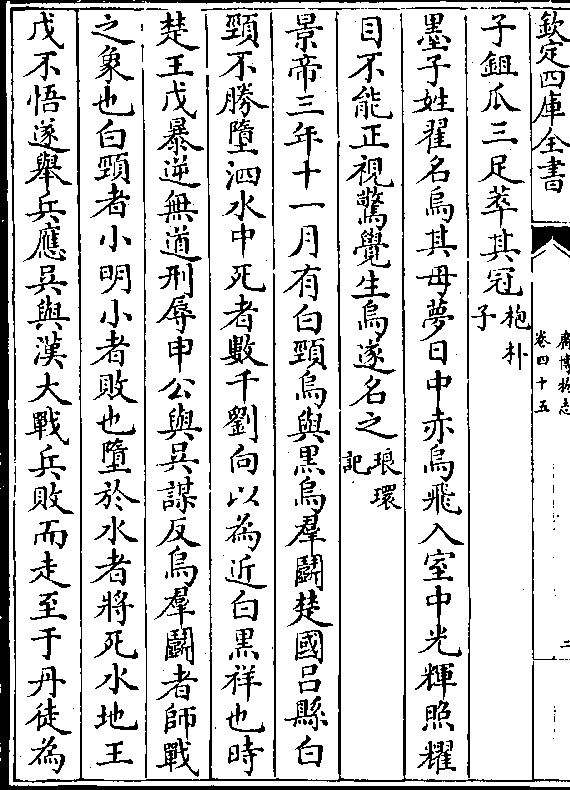 欽定四庫全書
廣博物志
卷四十五
二
子鉏瓜三足萃其冠抱朴子
墨子姓翟名烏其母夢日中赤烏飛入室中光輝照耀
目不能正視驚覺生烏遂名之琅環記
景帝三年十一月有白頸烏與黑烏羣鬭楚國吕縣白
頸不勝墮泗水中死者數千劉向以為近白黑祥也時
楚王戊暴逆無道刑辱申公與吴謀反烏羣鬭者師戰
之象也白頸者小明小者敗也墮於水者將死水地王
戊不悟遂舉兵應吴與漢大戰兵敗而走至于丹徒為